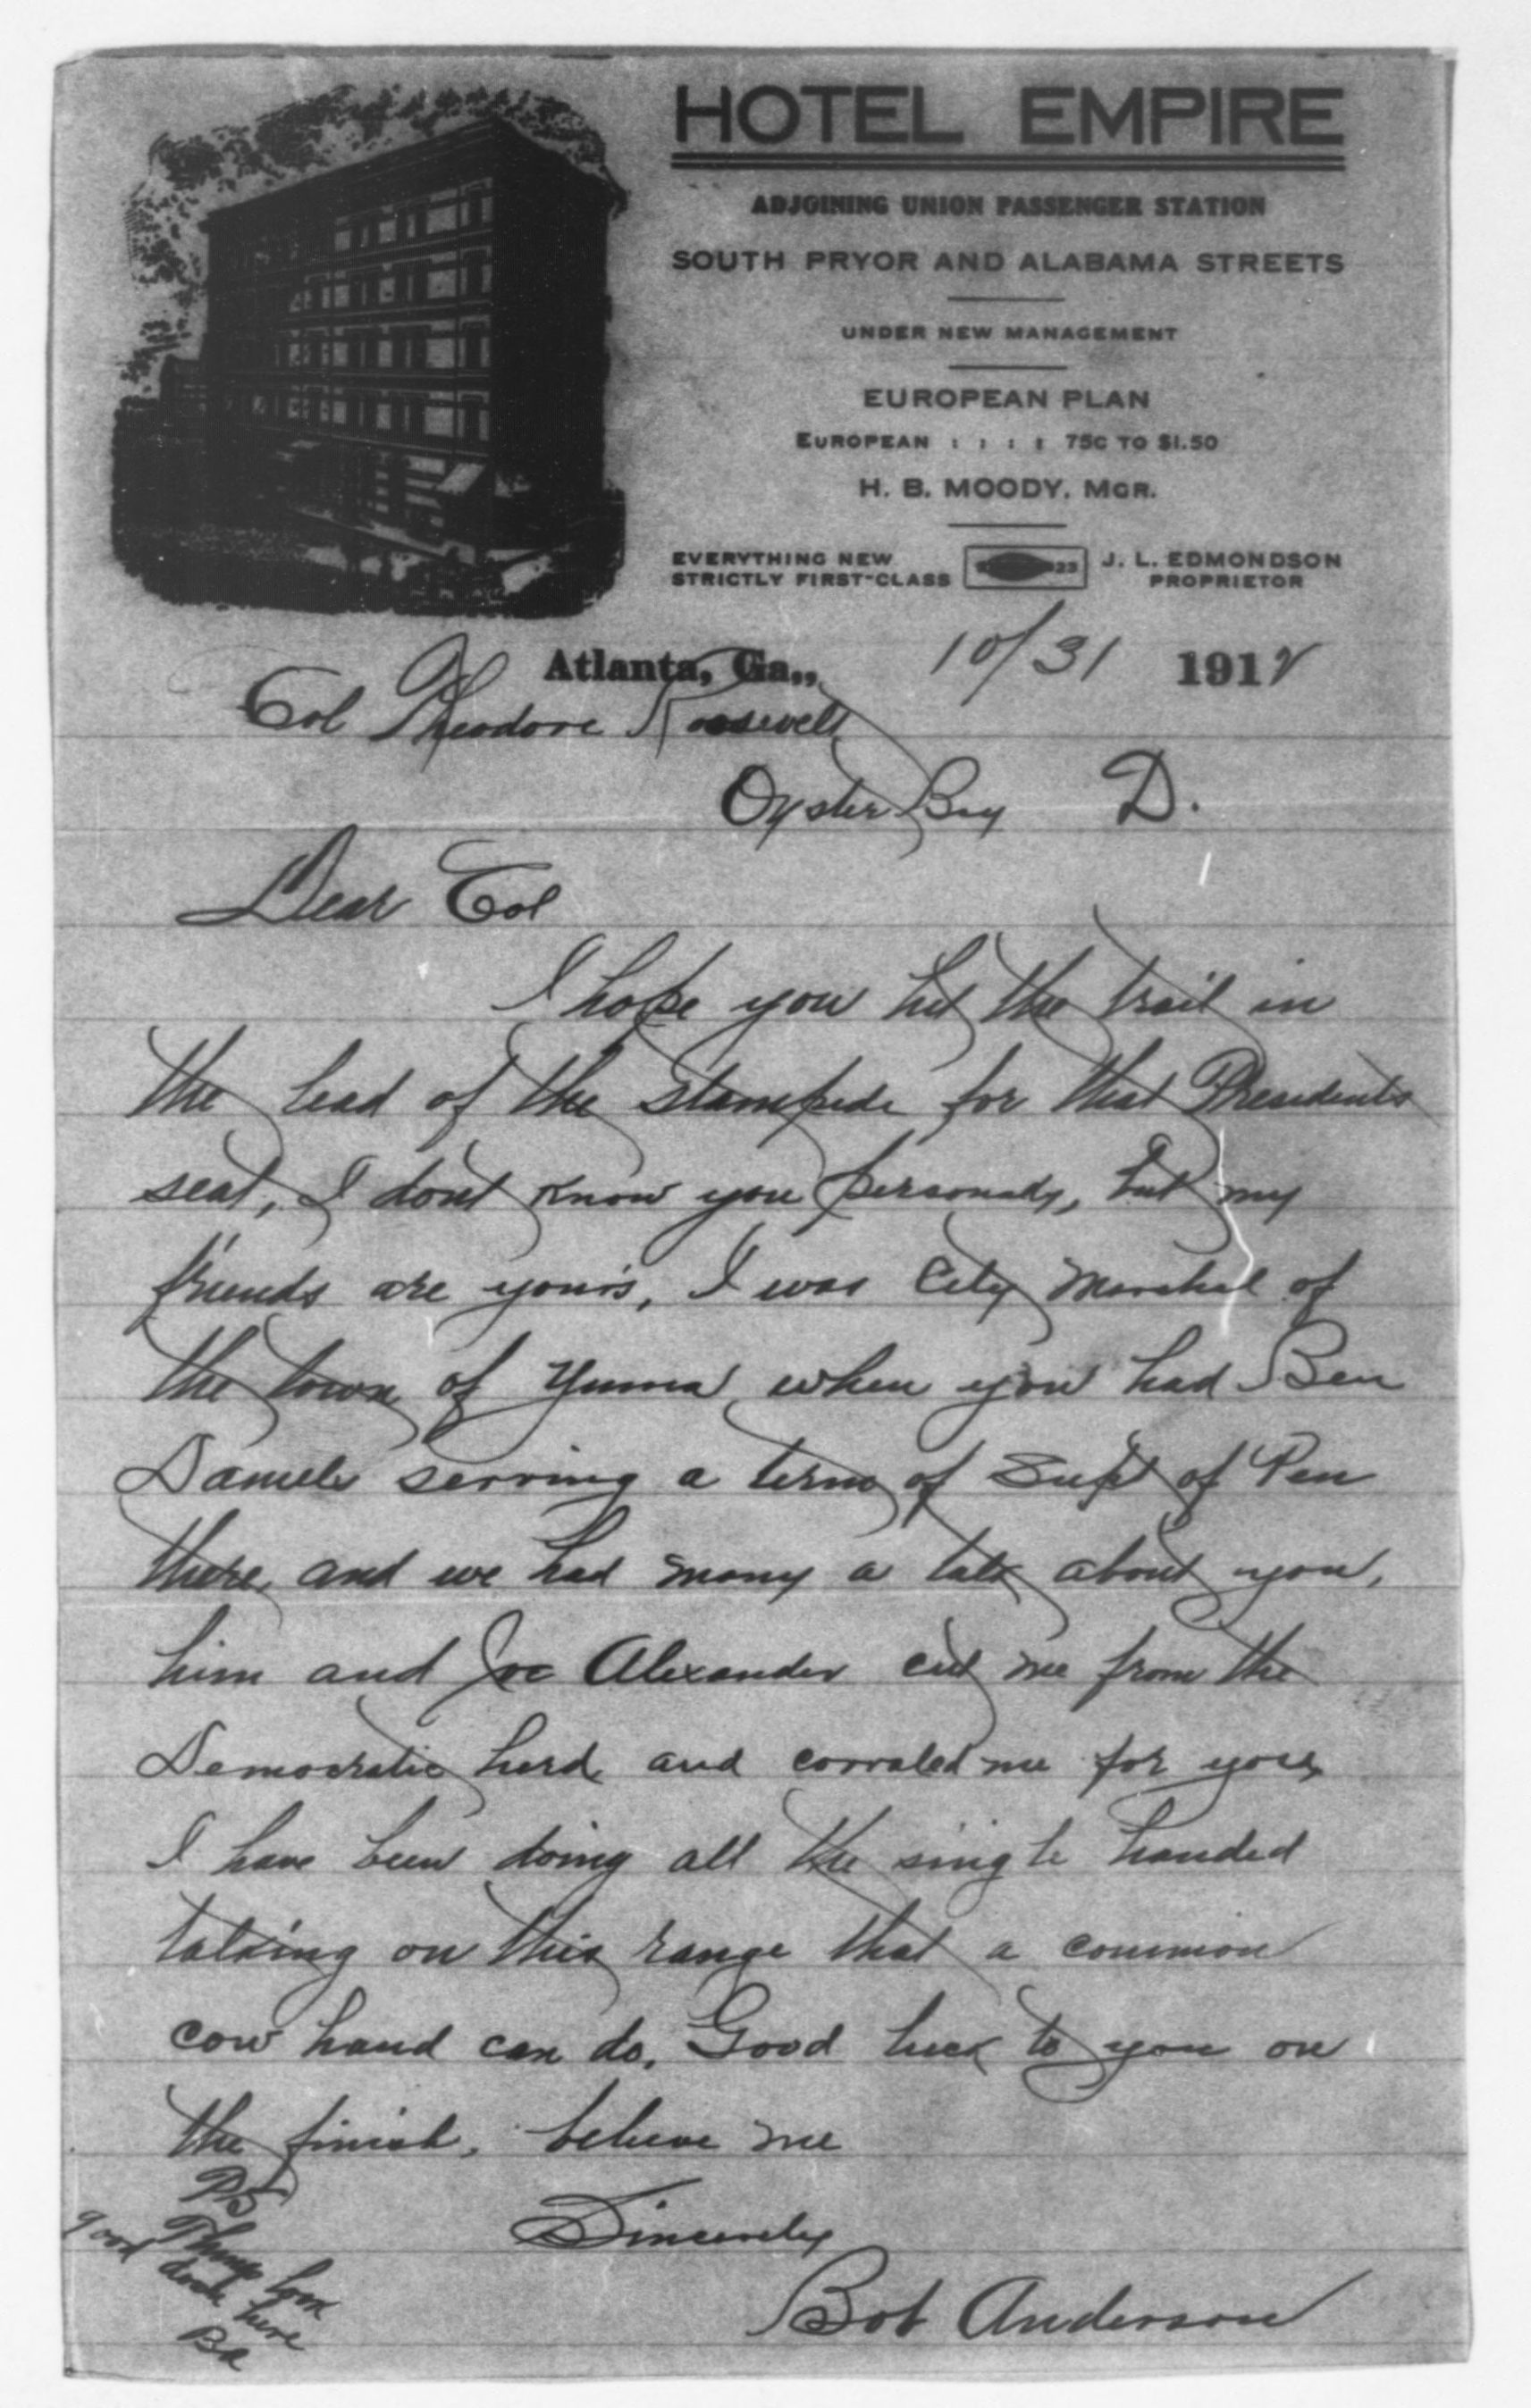 HOTEL EMPIRE
ADJOINING UNION PASSENGER STATION
SOUTH PRYOR AND ALABAMA STREETS
UNDER NEW MANAGEMENT
EUROPEAN PLAN
EUROPEAN : : : : 75C TO $1.50
H. B. MOODY, MGR.
EVERYTHING NEW
STRICTLY FIRST-CLASS
23
J. L. EDMONDSON
PROPRIETOR
Atlanta, Ga., 10/31 1912
Col Theodore Roosevelt
Oyster Bay D.
Dear Col
I hope you hit the trail in
the lead of the stampede for that Presidents
seat, I dont know you personaly, but my
friends are yours, I was City Marshal of
the town of Yuma when you had Ben
Daniels serving a term of Supt of Pen
there, and we had many a talk about you,
him and Joe Alexander cut me from the
Democratic herd and corraled me for you,
I have been doing all the single handed
talking on this range that a common
cow hand can do. Good luck to you on
the finish, believe me
Sincerely
Bob Anderson
PS
Things look
good down here
BA